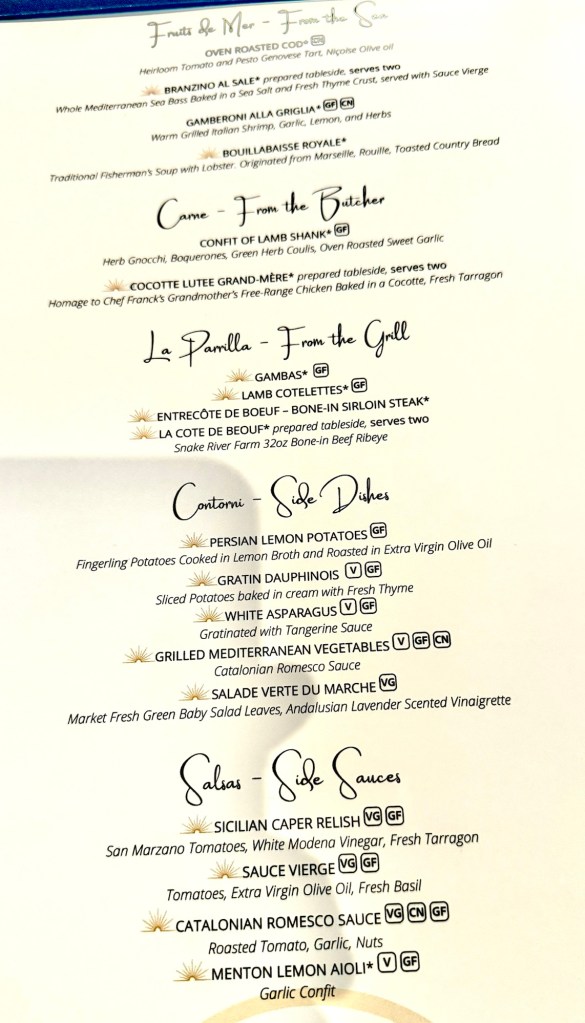 Fruits de Mer - From the Sea
OVEN ROASTED COD* CN
Heirloom Tomato and Pesto Genovese Tart, Niçoise Olive oil
BRANZINO AL SALE* prepared tableside, serves two
Whole Mediterranean Sea Bass Baked in a Sea Salt and Fresh Thyme Crust, served with Sauce Vierge
GAMBERONI ALLA GRIGLIA* GF CN
Warm Grilled Italian Shrimp, Garlic, Lemon, and Herbs
BOUILLABAISSE ROYALE*
Traditional Fisherman's Soup with Lobster. Originated from Marseille, Rouille, Toasted Country Bread
Carne - From the Butcher
CONFIT OF LAMB SHANK* GF
Herb Gnocchi, Boquerones, Green Herb Coulis, Oven Roasted Sweet Garlic
COCOTTE LUTEE GRAND-MÈRE* prepared tableside, serves two
Homage to Chef Franck's Grandmother's Free-Range Chicken Baked in a Cocotte, Fresh Tarragon
La Parrilla - From the Grill
GAMBAS* GF
LAMB COTELETTES* GF
ENTRECÔTE DE BOEUF – BONE-IN SIRLOIN STEAK*
LA COTE DE BEOUF* prepared tableside, serves two
Snake River Farm 32oz Bone-in Beef Ribeye
Contorni - Side Dishes
PERSIAN LEMON POTATOES GF
Fingerling Potatoes Cooked in Lemon Broth and Roasted in Extra Virgin Olive Oil
GRATIN DAUPHINOIS V GF
Sliced Potatoes baked in cream with Fresh Thyme
WHITE ASPARAGUS V GF
Gratinated with Tangerine Sauce
GRILLED MEDITERRANEAN VEGETABLES V GF CN
Catalonian Romesco Sauce
SALADE VERTE DU MARCHE VG
Market Fresh Green Baby Salad Leaves, Andalusian Lavender Scented Vinaigrette
Salsas - Side Sauces
SICILIAN CAPER RELISH VG GF
San Marzano Tomatoes, White Modena Vinegar, Fresh Tarragon
SAUCE VIERGE VG GF
Tomatoes, Extra Virgin Olive Oil, Fresh Basil
CATALONIAN ROMESCO SAUCE VG CN GF
Roasted Tomato, Garlic, Nuts
MENTON LEMON AIOLI* V GF
Garlic Confit